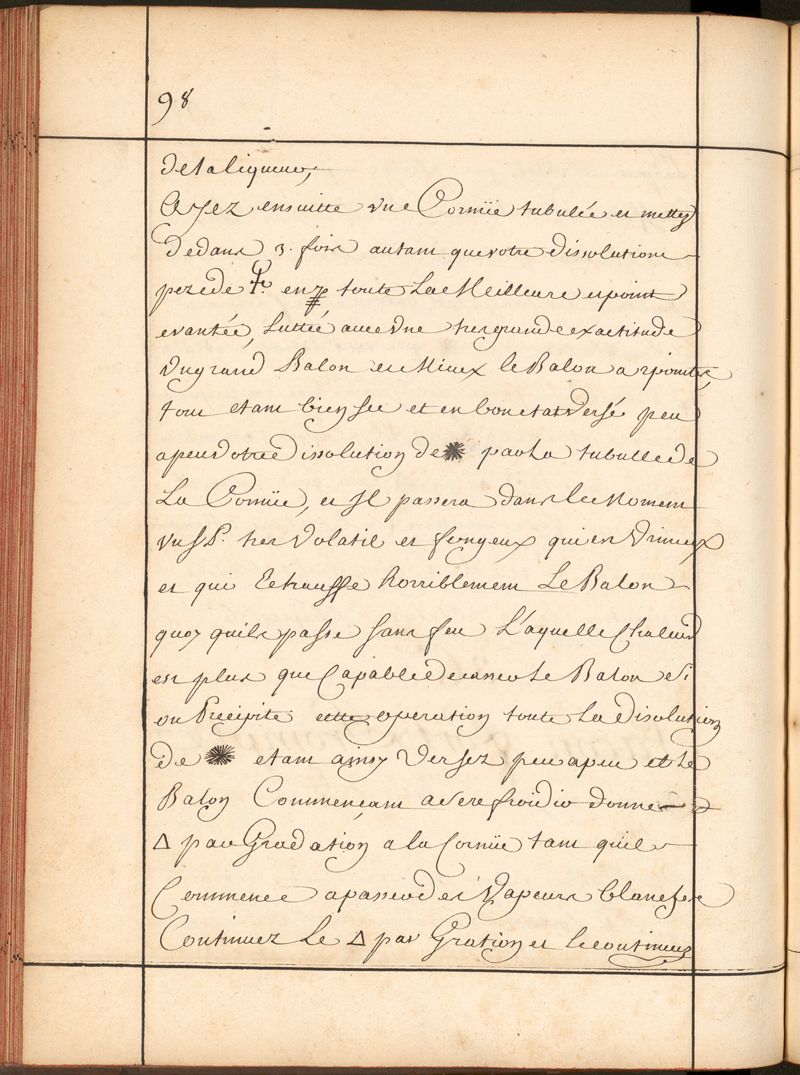 98
de la liqueur,
Ayez ensuitte vne Cornüe tubulée et mettez
dedans 3. fois autant que votre dissolution
peze de en toute La Meilleure et point
evantée, Luttée avec vne tres grande exactitude
vn grand Balon et Mieux le Balon a 2 pointes,
tout etant bien sec et en bon etat versé peu
a peu votre dissolution de ✷ par La tubulle de
La Cornüe, et Jl passera dans le Moment
vn SP. tres Volatil et fougeux qui est Vrineux
et qui Echauffe horriblement Le Balon
quoy quil passe sans feu L'aquelle Chaleur
est plus que Capable de casser le Balon Si
on Precipite cette operation toute la disolution
de ✷ etant ainsy Versez peu a peu et Le
Balon Commençant a se refroidir donne
△ par Gradation a la Cornüe tant qu'il
Commence a passer des Vapeurs blanches
Continuez Le △ par Gration et le continuez